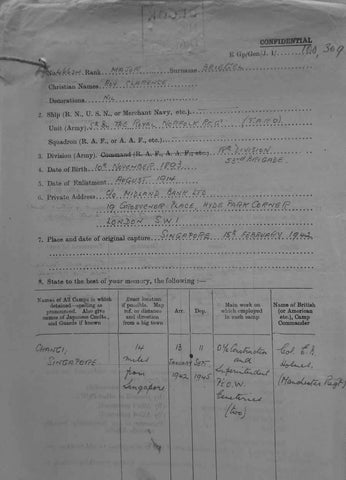 CONFIDENTIAL
E Gp/Gen/J.1/ 180,309
Rank MAJOR Surname
Christian Names ROY CLARENCE
Decorations NIL
2. Ship (R. N., U. S. N., or Merchant Navy, etc.)
Unit (Army) 5th Bn THE ROYAL NORFOLK REGT (T.A.R.O)
Squadron (R. A. F., or A. A. F., etc.)
3. Division (Army). Command (R. A. F., A. A. F., etc.) 18th DIVISION
53rd BRIGADE
4. Date of Birth 10th NOVEMBER 1893
5. Date of Enlistment AUGUST 1914
6. Private Address C/o MIDLAND BANK LTD
19 GROSVENOR PLACE, HYDE PARK CORNER
LONDON S.W.1
7. Place and date of original capture. SINGAPORE 15th FEBRUARY 1942
8. State to the best of your memory, the following :—
Names of All Camps in which detained—spelling as pronounced. Also give names of Japanese Comdts., and Guards if known
Exact location if possible. Map ref. or distance and direction from a big town
Arr.
Dep.
Main work on which employed in each camp.
Name of British (or American etc.), Camp Commander
CHANGI, SINGAPORE.
14 miles from Singapore
13 1942
11 Sept 1945
O/c Construction and Superintendent P.O.W. Cemeteries (two)
Col. E.B. Holmes. (Manchester Regt)